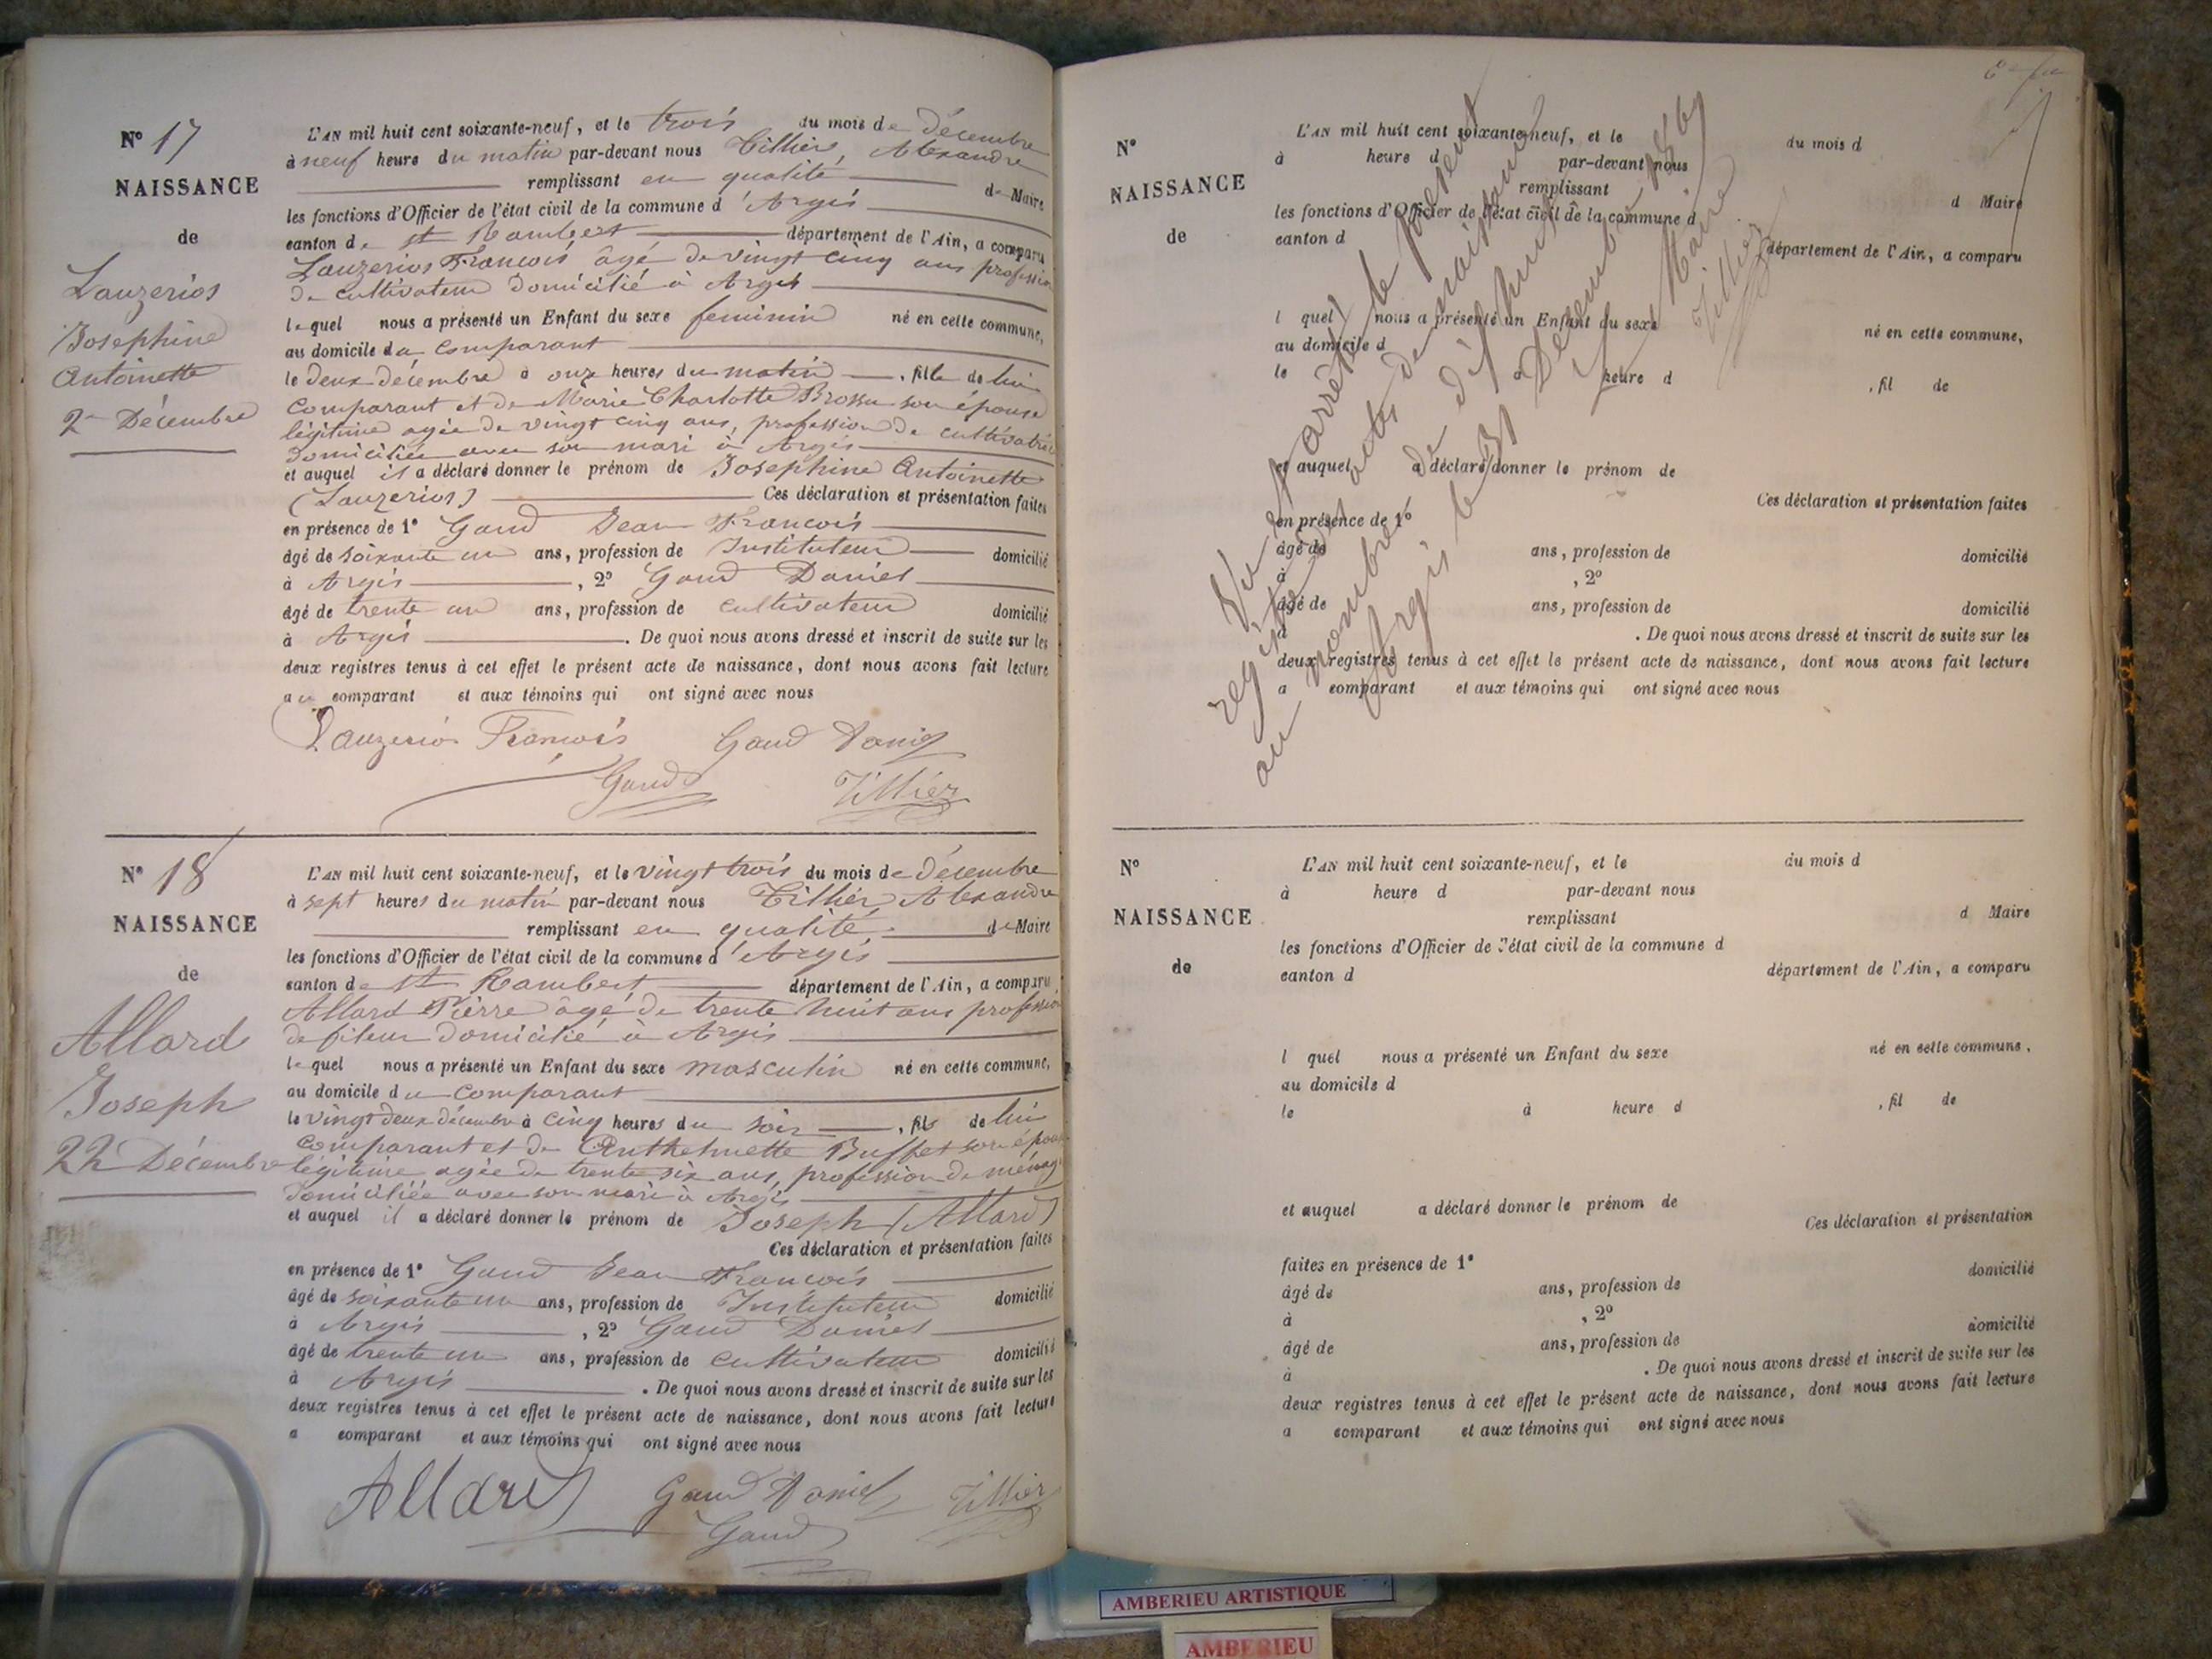 N° 17
NAISSANCE
de
Lauzerios
Josephine
Antoinette
2 Décembre
L'AN mil huit cent soixante-neuf, et le trois du mois de décembre
à neuf heure du matin par-devant nous Tillier, Alexandre
remplissant en qualité de Maire
les fonctions d'Officier de l'état civil de la commune d'Argis
canton de St Rambert département de l'Ain, a comparu
Lauzerios François âgé de vingt cinq ans profession
de cultivateur domicilié à Argis
lequel nous a présenté un Enfant du sexe feminin né en cette commune,
au domicile du comparant
le deux décembre à onze heures du matin, fille de lui
comparant et de Marie Charlotte Brossu son épouse
légitime agée de vingt cinq ans, profession de cultivatrice
domiciliée avec son mari à Argis
et auquel il a déclaré donner le prénom de Josephine Antoinette
(Lauzerios) Ces déclaration et présentation faites
en présence de 1° Gaud Jean François
âgé de soixante un ans, profession de Instituteur domicilié
à Argis, 2° Gaud Daniel
âgé de trente un ans, profession de cultivateur domicilié
à Argis. De quoi nous avons dressé et inscrit de suite sur les
deux registres tenus à cet effet le présent acte de naissance, dont nous avons fait lecture
au comparant et aux témoins qui ont signé avec nous
Lauzerios François Gaud Daniel
Gaud Tillier
N° 18
NAISSANCE
de
Allard
Joseph
22 Décembre
L'AN mil huit cent soixante-neuf, et le vingt trois du mois de décembre
à sept heures du matin par-devant nous Tillier, Alexandre
remplissant en qualité de Maire
les fonctions d'Officier de l'état civil de la commune d'Argis
canton de St Rambert département de l'Ain, a comparu
Allard Pierre âgé de trente huit ans profession
de fileur domicilié à Argis
lequel nous a présenté un Enfant du sexe masculin né en cette commune,
au domicile du comparant
le vingt deux décembre à cinq heures du soir, fils de lui
comparant et de Anthelmette Buffet son épouse
légitime agée de trente six ans, profession de ménag
domiciliée avec son mari à Argis
et auquel il a déclaré donner le prénom de Joseph (Allard)
Ces déclaration et présentation faites
en présence de 1° Gaud Jean François
âgé de soixante un ans, profession de Instituteur domicilié
à Argis, 2° Gaud Daniel
âgé de trente un ans, profession de cultivateur domicilié
à Argis. De quoi nous avons dressé et inscrit de suite sur les
deux registres tenus à cet effet le présent acte de naissance, dont nous avons fait lecture
a comparant et aux témoins qui ont signé avec nous
Allard Gaud Daniel Tillier
Gaud
N°
NAISSANCE
de
L'AN mil huit cent soixante-neuf, et le du mois d
à heure d par-devant nous
remplissant d Maire
les fonctions d'Officier de l'état civil de la commune d
canton d département de l'Ain, a comparu
l quel nous a présenté un Enfant du sexe né en cette commune,
au domicile d
le à heure d , fil de
et auquel a déclaré donner le prénom de
Ces déclaration et présentation faites
en présence de 1°
âgé de ans, profession de domicilié
à , 2°
âgé de ans, profession de domicilié
à . De quoi nous avons dressé et inscrit de suite sur les
deux registres tenus à cet effet le présent acte de naissance, dont nous avons fait lecture
a comparant et aux témoins qui ont signé avec nous
Vu et arrêté le présent
registre des actes de naissance
au nombre de dix huit
Argis le 31 Décembre 1869
Le Maire
Tillier
N°
NAISSANCE
de
L'AN mil huit cent soixante-neuf, et le du mois d
à heure d par-devant nous
remplissant d Maire
les fonctions d'Officier de l'état civil de la commune d
canton d département de l'Ain, a comparu
l quel nous a présenté un Enfant du sexe né en cette commune,
au domicile d
le à heure d , fil de
et auquel a déclaré donner le prénom de
Ces déclaration et présentation
faites en présence de 1°
domicilié
âgé de ans, profession de
à , 2°
domicilié
âgé de ans, profession de
à . De quoi nous avons dressé et inscrit de suite sur les
deux registres tenus à cet effet le présent acte de naissance, dont nous avons fait lecture
a comparant et aux témoins qui ont signé avec nous
AMBERIEU ARTISTIQUE
AMBERIEU